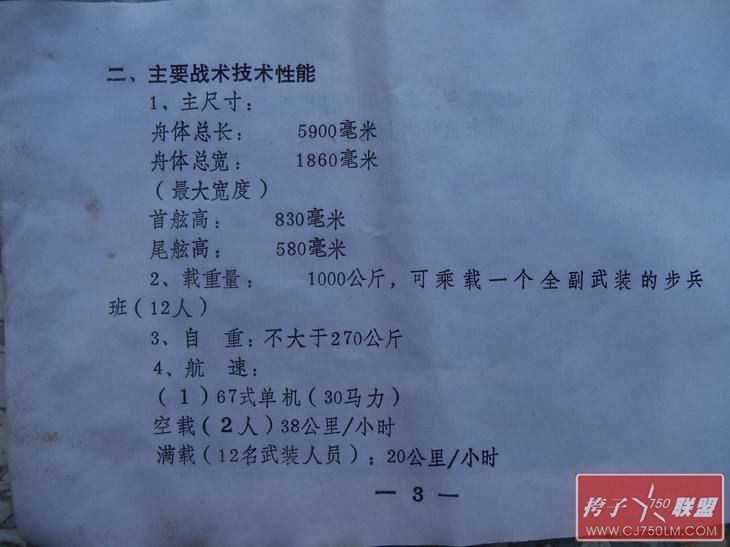 二、主要战术技术性能
1、主尺寸:
舟体总长: 5900毫米
舟体总宽: 1860毫米
(最大宽度)
首舷高: 830毫米
尾舷高: 580毫米
2、载重量: 1000公斤,可乘载一个全副武装的步兵
班(12人)
3、自 重:不大于270公斤
4、航 速:
(1)67式单机(30马力)
空载(2人)38公里/小时
满载(12名武装人员);20公里/小时
— 3 —
挎子 750 联盟
WWW.CJ750LM.COM